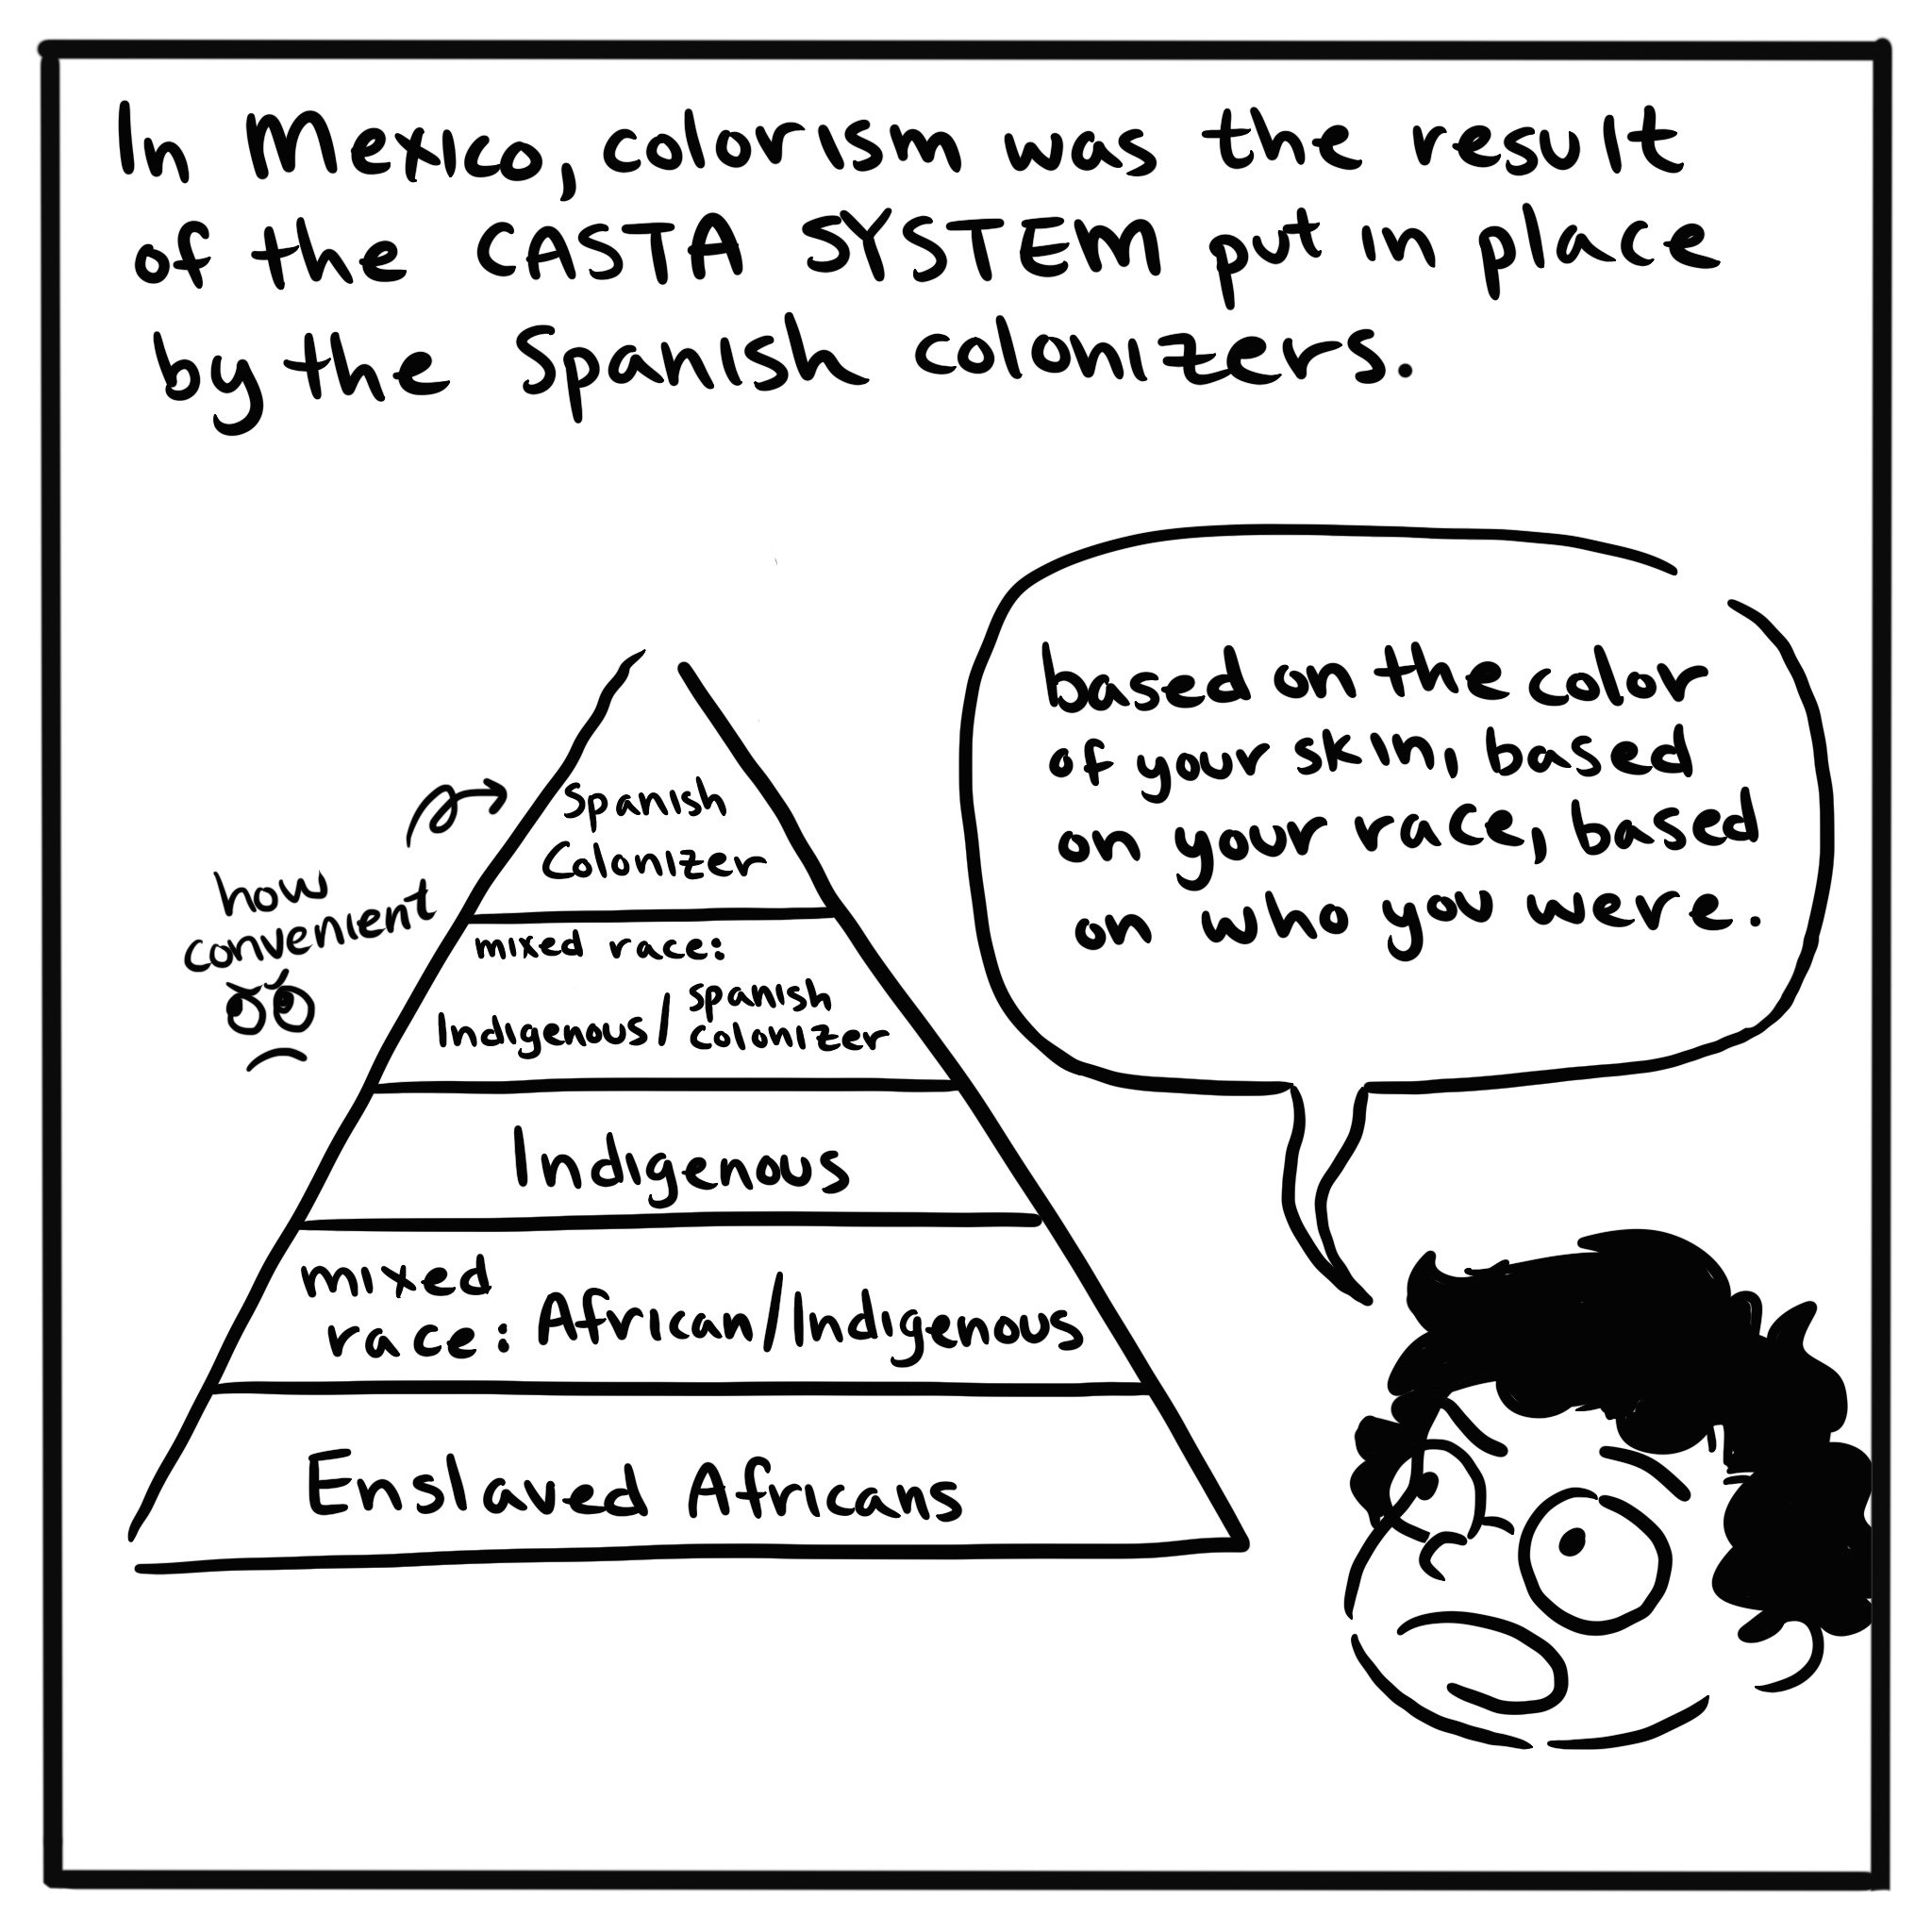 In Mexico, colorism was the result
of the CASTA SYSTEM put in place
by the Spanish colonizers.
based on the color
of your skin, based
on your race, based
on who you were.
how
convenient
Spanish
Colonizer
mixed race:
Indigenous/ spanish
colonizer
Indigenous
mixed
race: African/Indigenous
Enslaved Africans